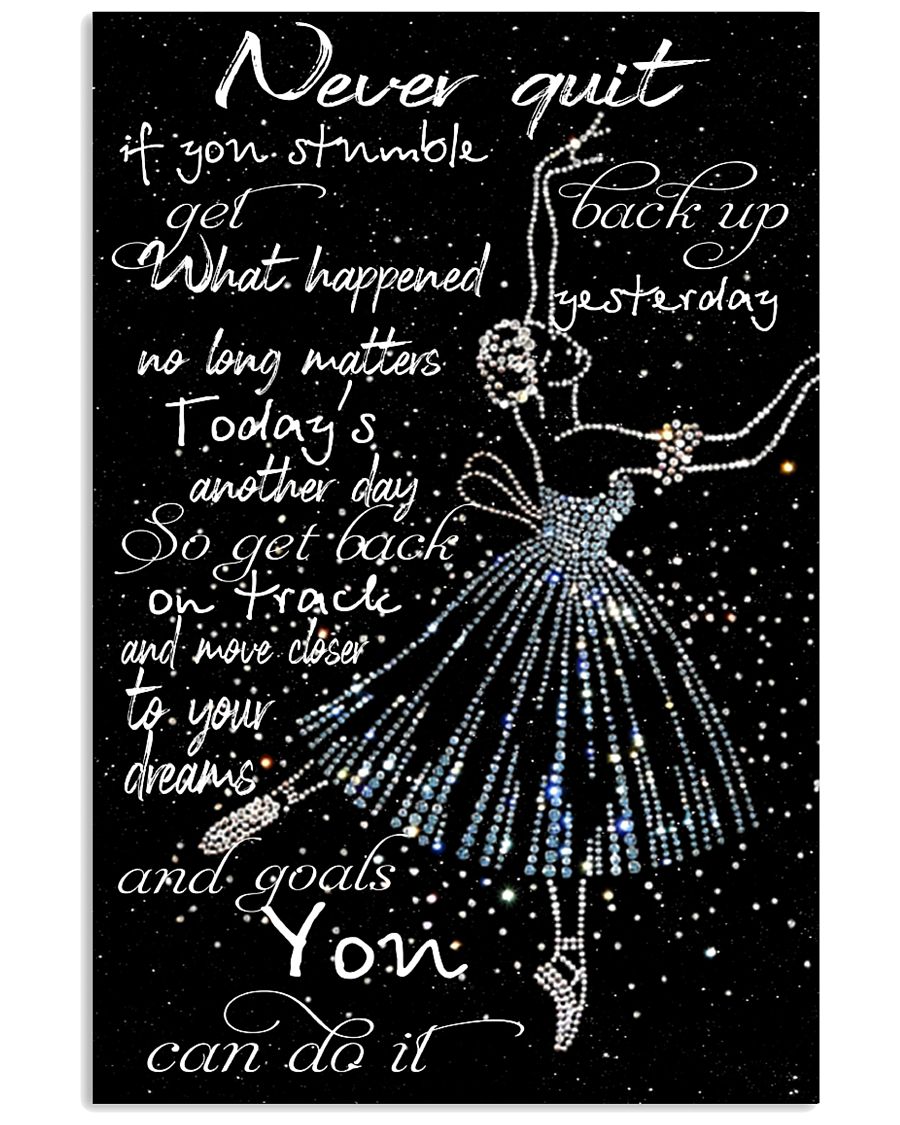 Never quit
if you stumble
get back up
What happened yesterday
no long matters
Today's
another day
So get back
on track
and move closer
to your
dreams
and goals
You
can do it